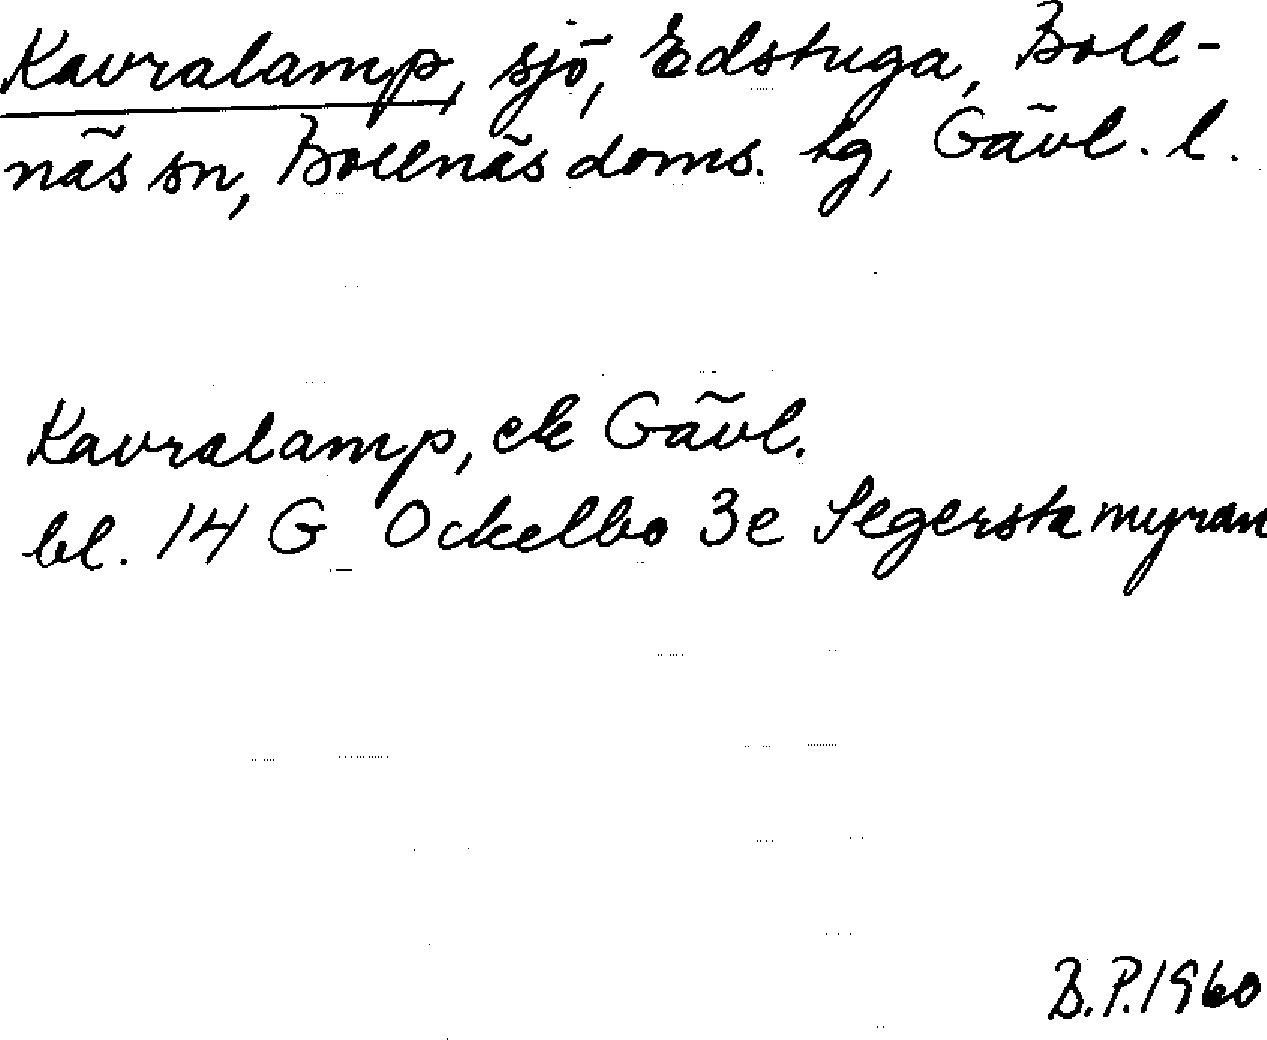 Kavralamp, sjö, Edstuga, Boll-
näs sn, Bollnäs doms. tg, Gävl. l.
Kavralamp, ek Gävl.
bl. 14 G Ockelbo 3e Segerstamyran
B.P.1960